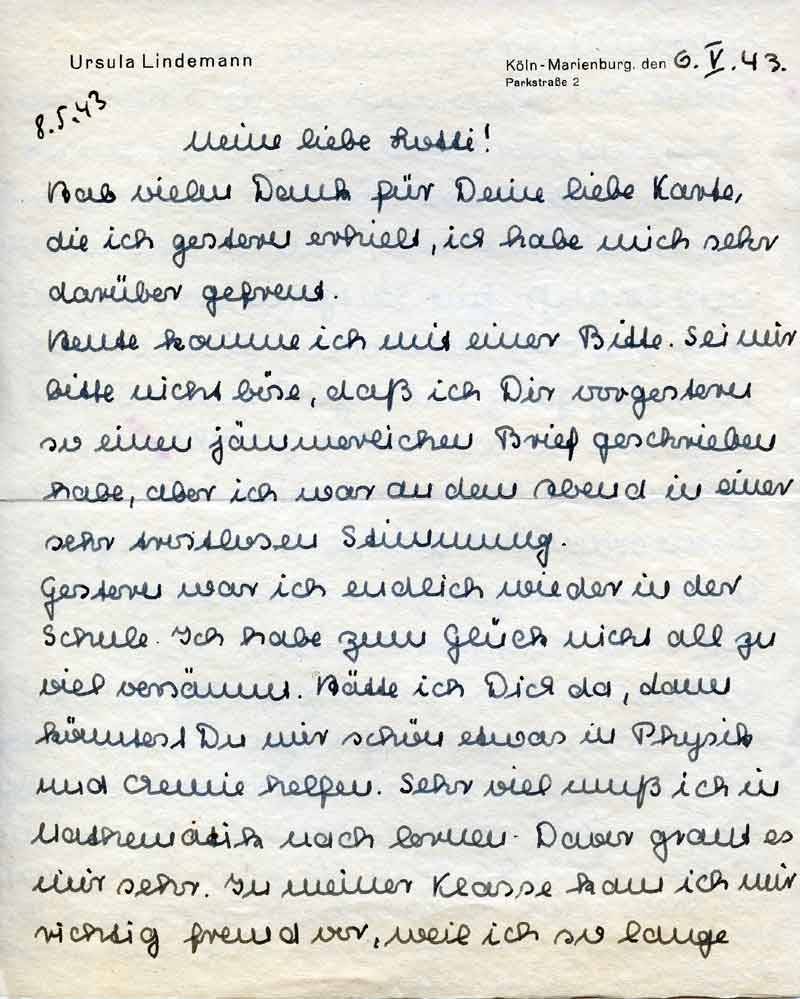 Ursula Lindemann
Köln-Marienburg, den 6. V. 43.
Parkstraße 2
8.5.43
Meine liebe Hotti!
Hab vielen Dank für Deine liebe Karte,
die ich gestern erhielt, ich habe mich sehr
darüber gefreut.
Heute komme ich mit einer Bitte. Sei mir
bitte nicht böse, daß ich Dir vorgestern
so einen jämmerlichen Brief geschrieben
habe, aber ich war an dem Abend in einer
sehr trostlosen Stimmung.
Gestern war ich endlich wieder in der
Schule. Ich habe zum Glück nicht all zu
viel versäumt. Hätte ich Dich da, dann
könntest Du mir schön etwas in Physik
und Chemie helfen. Sehr viel muß ich in
Mathematik nach lernen. Davor graut es
mir sehr. In meiner Klasse kam ich mir
richtig fremd vor, weil ich so lange